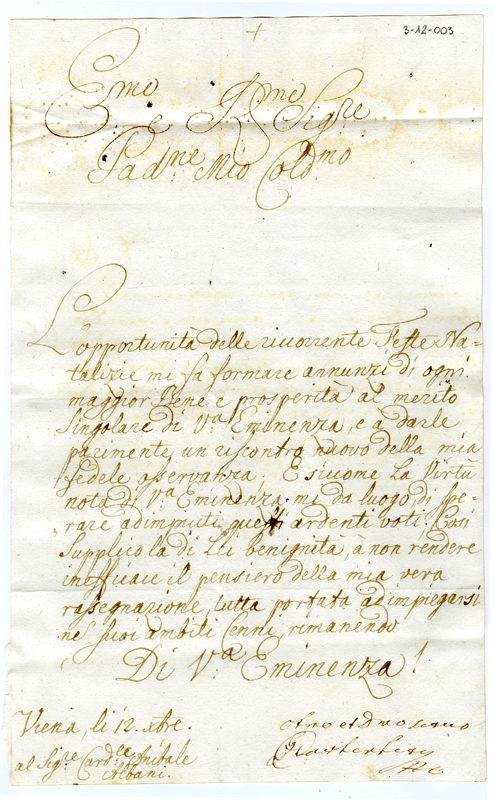 3-12-003
+
Emo e Rmo Sigre
Padne Mio Coldmo
L'opportunità delle ricorrente Feste Na-
talizie mi fa formare annunzi di ogni
maggior Bene e prosperità al merito
Singolare di Va Eminenza, e à darle
parimente un riscontro nuovo della mia
fedele osservanza; E siccome la Virtù
nota di Va Eminenza mi da luogo di spe-
rare adimpiuti questi ardenti voti, Così
Supplico la di Lei benignità, à non rendere
inefficace il pensiero della mia vera
rassegnazione, tutta portata ad impiegarsi
ne' suoi ambiti Cenni, rimanendo
Di Va Eminenza!
Viena, li 12. xbre.
al Sigre Cardle Anibale
Albani.